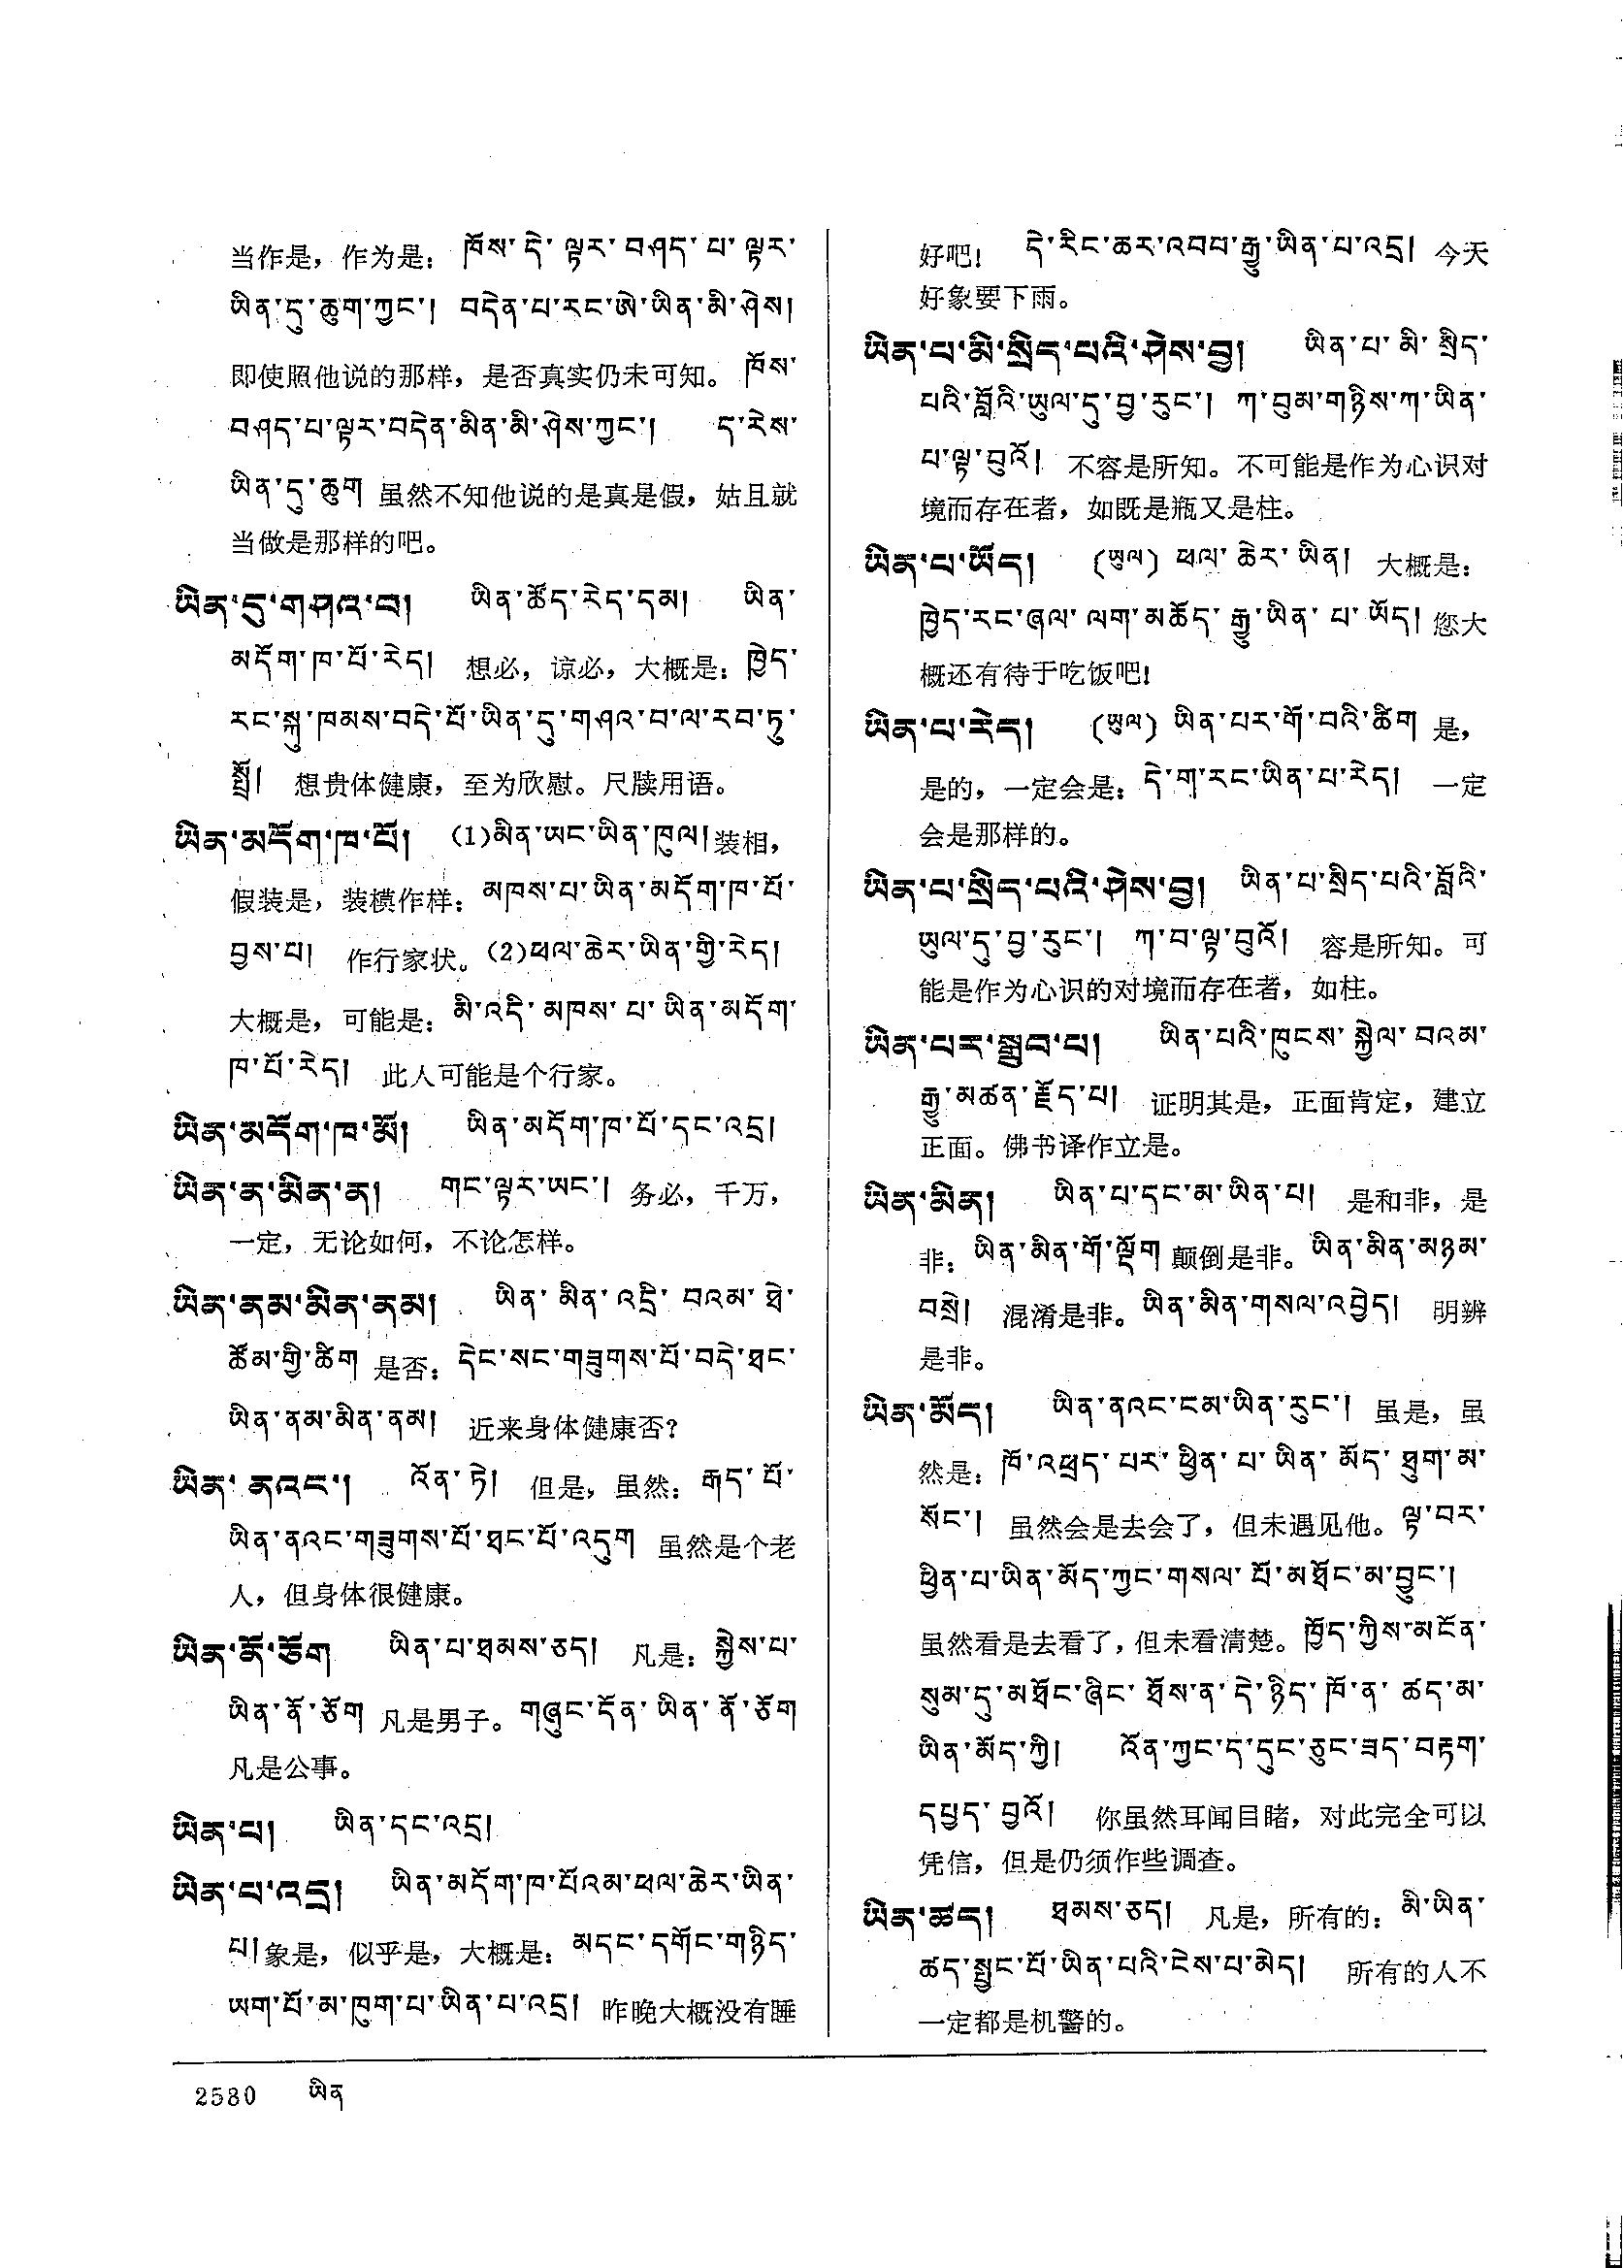 当作是，作为是：ཁོས་དེ་ལྟར་བཤད་པ་ལྟར་
ཡིན་དུ་ཆུག་ཀྱང་། བདེན་པ་རང་ཨེ་ཡིན་མི་ཤེས།
即使照他说的那样，是否真实仍未可知。ཁོས་
བཤད་པ་ལྟར་བདེན་མིན་མི་ཤེས་ཀྱང་། ད་རེས་
ཡིན་དུ་ཆུག 虽然不知他说的是真是假，姑且就
当做是那样的吧。
ཡིན་དུ་གཤའ་བ། ཡིན་ཚོད་རེད་དམ། ཡིན་
མདོག་ཁ་པོ་རེད། 想必，谅必，大概是：ཁྱེད་
རང་སྐུ་ཁམས་བདེ་པོ་ཡིན་དུ་གཤའ་བ་ལ་རབ་ཏུ་
སྤྲོ། 想贵体健康，至为欣慰。尺牍用语。
ཡིན་མདོག་ཁ་པོ། (1)མིན་ཡང་ཡིན་ཁུལ།装相，
假装是，装模作样：མཁས་པ་ཡིན་མདོག་ཁ་པོ་
བྱས་པ། 作行家状。(2)ཕལ་ཆེར་ཡིན་གྱི་རེད།
大概是，可能是：མི་འདི་མཁས་པ་ཡིན་མདོག་
ཁ་པོ་རེད། 此人可能是个行家。
ཡིན་མདོག་ཁ་མོ། ཡིན་མདོག་ཁ་པོ་དང་འདྲ།
ཡིན་ན་མིན་ན། གང་ལྟར་ཡང་། 务必，千万，
一定，无论如何，不论怎样。
ཡིན་ནམ་མིན་ནམ། ཡིན་མིན་འདྲི་བའམ་ཐེ་
ཚོམ་གྱི་ཚིག 是否：དེང་སང་གཟུགས་པོ་བདེ་ཐང་
ཡིན་ནམ་མིན་ནམ། 近来身体健康否？
ཡིན་ནའང་། འོན་ཏེ། 但是，虽然：རྒད་པོ་
ཡིན་ནའང་གཟུགས་པོ་ཐང་པོ་འདུག 虽然是个老
人，但身体很健康。
ཡིན་ནོ་ཅོག ཡིན་པ་ཐམས་ཅད། 凡是：སྐྱེས་པ་
ཡིན་ནོ་ཅོག 凡是男子。གཞུང་དོན་ཡིན་ནོ་ཅོག
凡是公事。
ཡིན་པ། ཡིན་དང་འདྲ།
ཡིན་པ་འདྲ། ཡིན་མདོག་ཁ་པོའམ་ཕལ་ཆེར་ཡིན་
པ།象是，似乎是，大概是：མདང་དགོང་གཉིད་
ཡག་པོ་མ་ཁུག་པ་ཡིན་པ་འདྲ། 昨晚大概没有睡
好吧！ དེ་རིང་ཆར་འབབ་རྒྱུ་ཡིན་པ་འདྲ། 今天
好象要下雨。
ཡིན་པ་མི་སྲིད་པའི་ཤེས་བྱ། ཡིན་པ་མི་སྲིད་
པའི་བློའི་ཡུལ་དུ་བྱ་རུང་། ཀ་བུམ་གཉིས་ཀ་ཡིན་
པ་ལྟ་བུའོ། 不容是所知。不可能是作为心识对
境而存在者，如既是瓶又是柱。
ཡིན་པ་ཡོད། (ཡུལ) ཕལ་ཆེར་ཡིན། 大概是：
ཁྱེད་རང་ཞལ་ལག་མཆོད་རྒྱུ་ཡིན་པ་ཡོད། 您大
概还有待于吃饭吧！
ཡིན་པ་རེད། (ཡུལ) ཡིན་པར་གོ་བའི་ཚིག 是，
是的，一定会是：དེ་ག་རང་ཡིན་པ་རེད། 一定
会是那样的。
ཡིན་པ་སྲིད་པའི་ཤེས་བྱ། ཡིན་པ་སྲིད་པའི་བློའི་
ཡུལ་དུ་བྱ་རུང་། ཀ་བ་ལྟ་བུའོ། 容是所知。可
能是作为心识的对境而存在者，如柱。
ཡིན་པར་སྒྲུབ་པ། ཡིན་པའི་ཁུངས་སྐྱེལ་བའམ་
རྒྱུ་མཚན་རྗོད་པ། 证明其是，正面肯定，建立
正面。佛书译作立是。
ཡིན་མིན། ཡིན་པ་དང་མ་ཡིན་པ། 是和非，是
非：ཡིན་མིན་གོ་ལྡོག 颠倒是非。ཡིན་མིན་མཉམ་
བསྲེ། 混淆是非。ཡིན་མིན་གསལ་འབྱེད། 明辨
是非。
ཡིན་མོད། ཡིན་ནའང་ངམ་ཡིན་རུང་། 虽是，虽
然是：ཁོ་འཕྲད་པར་ཕྱིན་པ་ཡིན་མོད་ཐུག་མ་
སོང་། 虽然会是去会了，但未遇见他。ལྟ་བར་
ཕྱིན་པ་ཡིན་མོད་ཀྱང་གསལ་པོ་མཐོང་མ་བྱུང་།
虽然看是去看了，但未看清楚。ཁྱོད་ཀྱིས་མངོན་
སུམ་དུ་མཐོང་ཞིང་ཐོས་ན་དེ་ཉིད་ཁོ་ན་ཚད་མ་
ཡིན་མོད་ཀྱི། འོན་ཀྱང་ད་དུང་ཅུང་ཟད་བརྟག་
དཔྱད་བྱའོ། 你虽然耳闻目睹，对此完全可以
凭信，但是仍须作些调查。
ཡིན་ཚད། ཐམས་ཅད། 凡是，所有的：མི་ཡིན་
ཚད་སྤྱང་པོ་ཡིན་པའི་ངེས་པ་མེད། 所有的人不
一定都是机警的。
2580 ཡིན